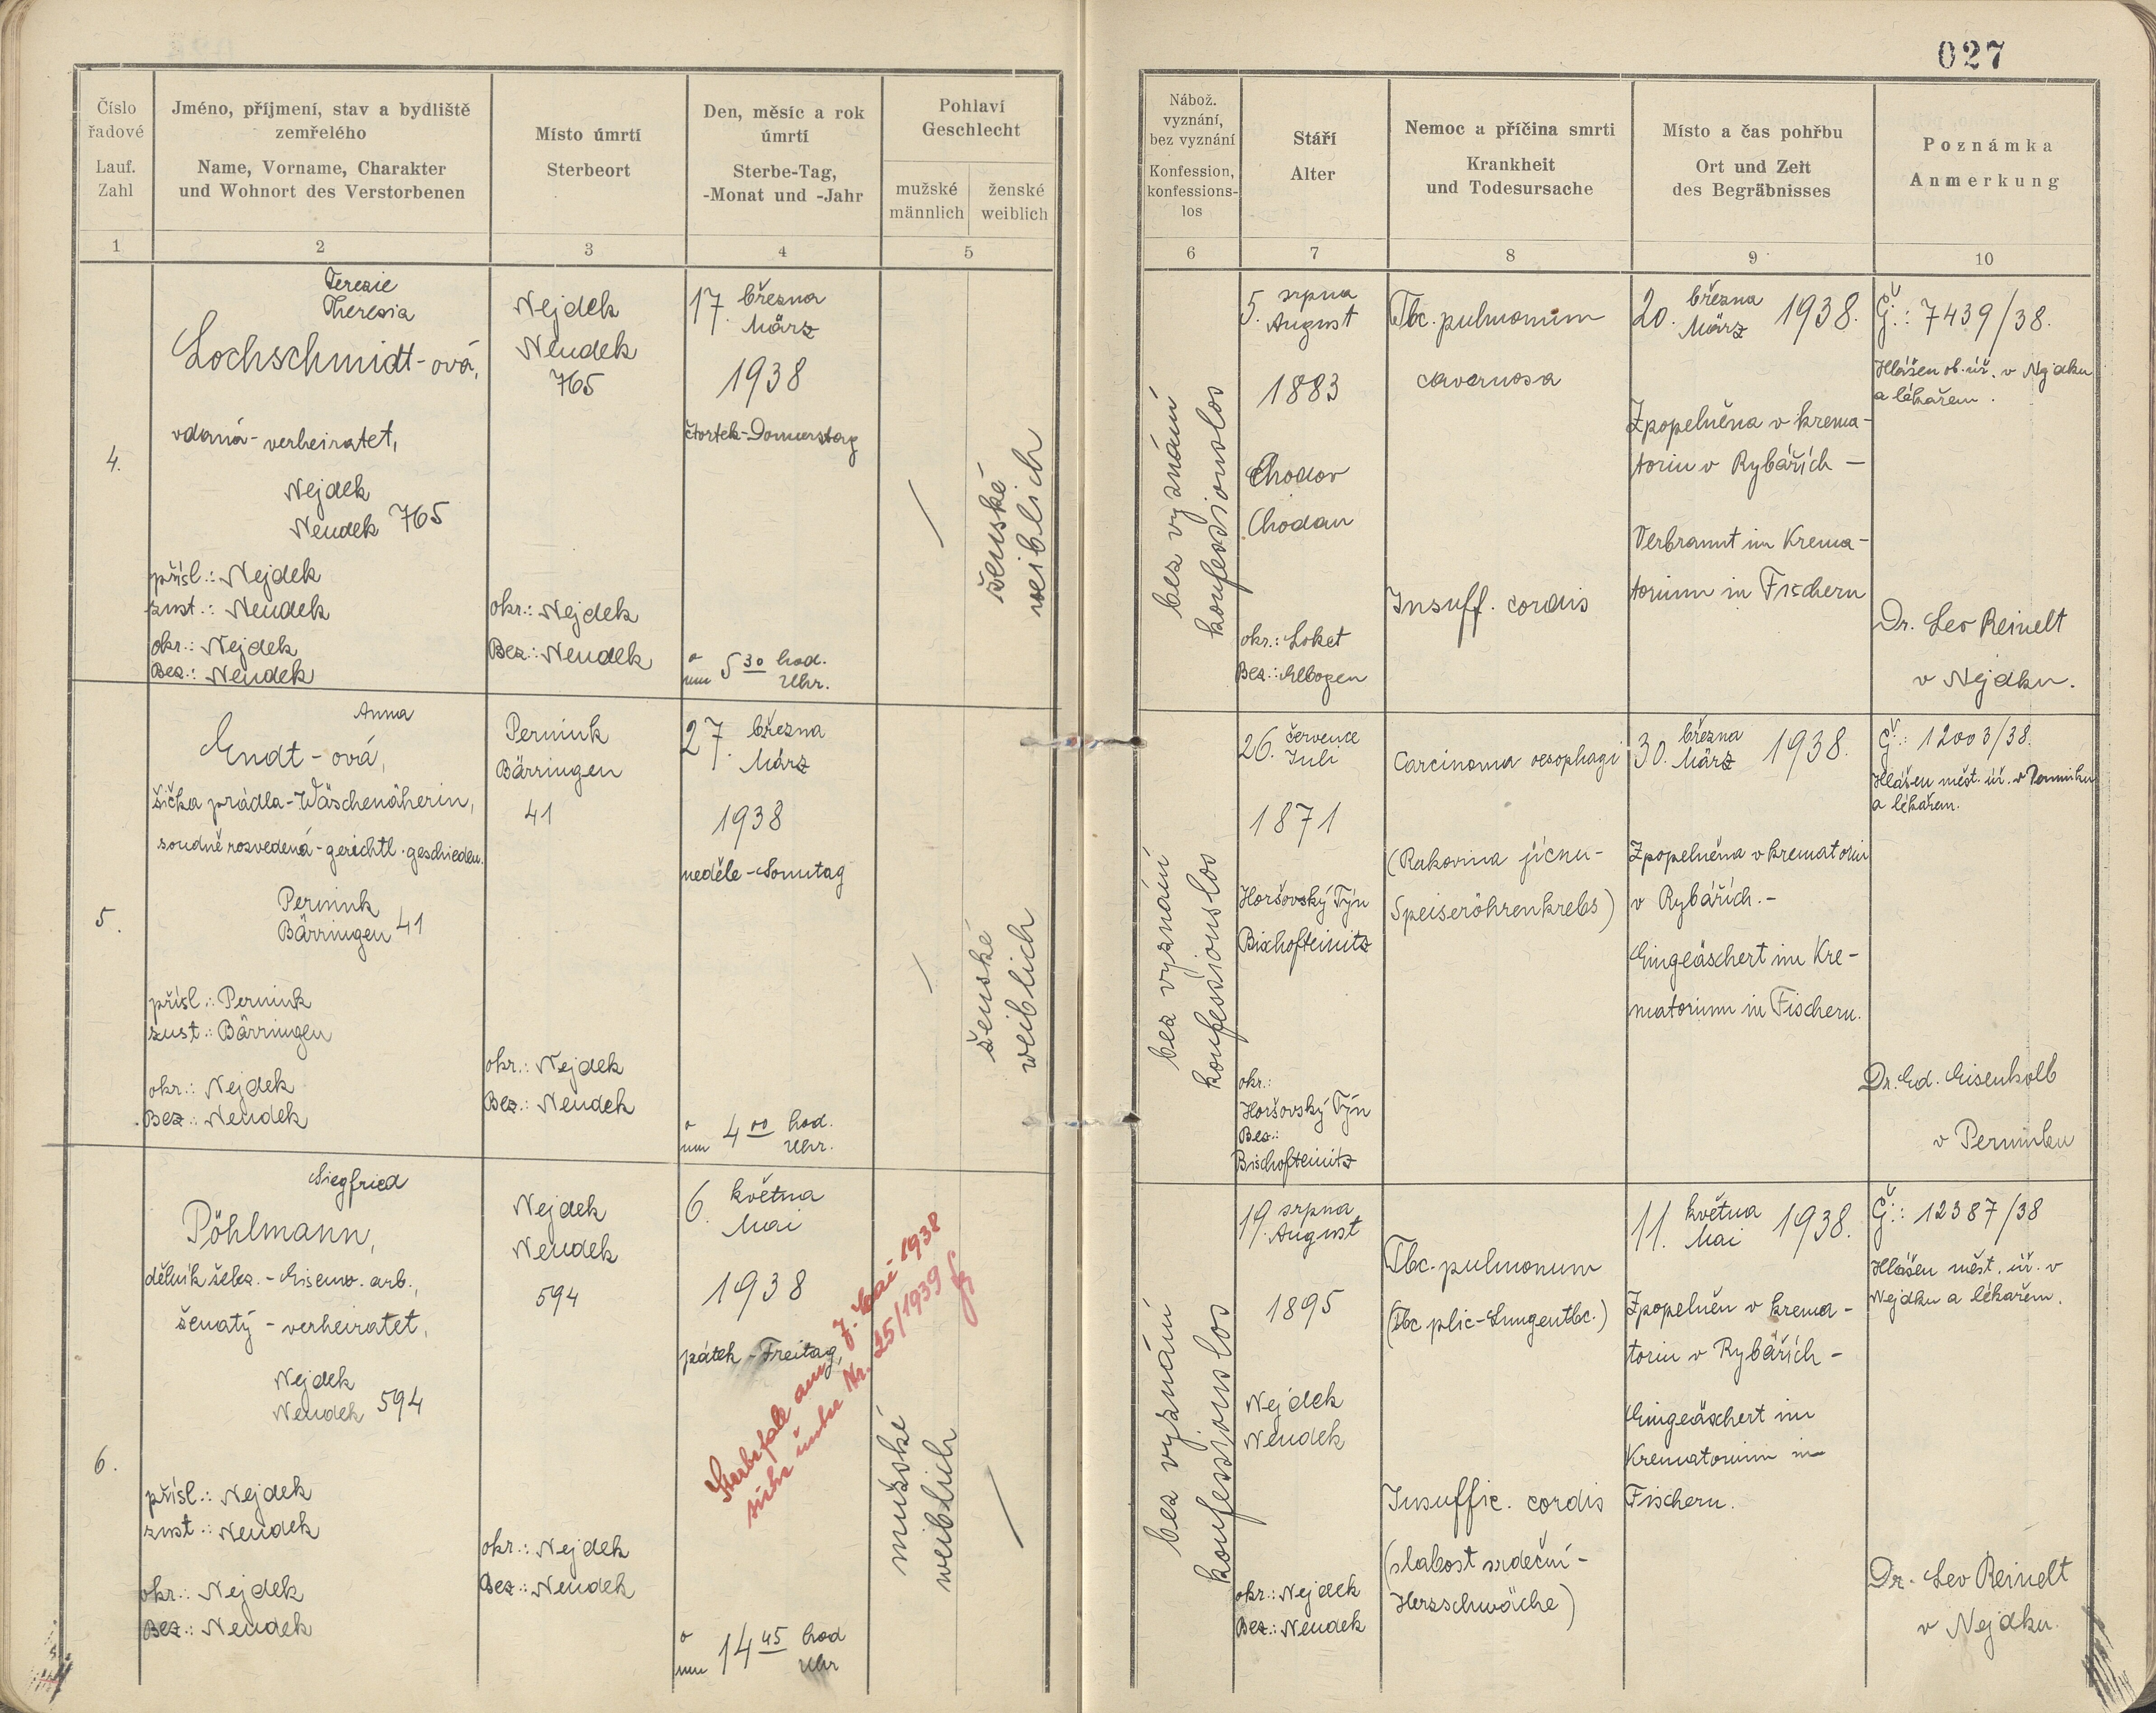 027
Číslo
řadové
Lauf.
Zahl
Jméno, příjmení, stav a bydliště
zemřelého
Name, Vorname, Charakter
und Wohnort des Verstorbenen
Místo úmrtí
Sterbeort
Den, měsíc a rok
úmrtí
Sterbe-Tag,
-Monat und -Jahr
Pohlaví
Geschlecht
mužské
männlich
ženské
weiblich
Nábož.
vyznání,
bez vyznání
Konfession,
konfessions-
los
Stáří
Alter
Nemoc a příčina smrti
Krankheit
und Todesursache
Místo a čas pohřbu
Ort und Zeit
des Begräbnisses
Poznámka
Anmerkung
1 2 3 4 5 6 7 8 9 10
4.
Terezie
Theresia
Lochschmidt-ová,
vdaná - verheiratet,
Nejdek
Neudek 765
přísl.: Nejdek
zust.: Neudek
okr.: Nejdek
Bez.: Neudek
Nejdek
Neudek
765
okr.: Nejdek
Bez.: Neudek
17. března
März
1938
čtvrtek-Donnerstag
o
um 5 30 hod.
Uhr.
ženské
weiblich
bez vyznání
konfessionslos
5. srpna
August
1883
Chodov
Chodau
okr.: Loket
Bez.: Elbogen
Tbc. pulmonum
cavernosa
Insuff. cordis
20. března
März 1938.
Zpopelněna v krema-
toriu v Rybářích -
Verbrannt im Krema-
torium in Fischern
Č.: 7439/38.
Hlášen ob. úř. v Nejdku
a lékařem.
Dr. Leo Reinelt
v Nejdku.
5.
Anna
Endt-ová,
šička prádla-Wäschenäherin,
soudně rozvedená-gerichtl. geschieden.
Pernink
Bärringen 41
přísl.: Pernink
zust.: Bärringen
okr.: Nejdek
Bez.: Neudek
Pernink
Bärringen
41
okr.: Nejdek
Bez.: Neudek
27. března
März
1938
neděle-Sonntag
o
um 4 00 hod.
Uhr.
ženské
weiblich
bez vyznání
konfessionslos
26. července
Juli
1871
Horšovský Týn
Bischofteinitz
okr.:
Horšovský Týn
Bez.:
Bischofteinitz
Carcinoma oesophagi
(Rakovina jícnu-
Speiseröhrenkrebs)
30. března
März 1938.
Zpopelněna v krematoriu
v Rybářích.-
Eingeäschert im Kre-
matorium in Fischern.
Č.: 12003/38.
Hlášen měst. úř. v Perninku
a lékařem.
Dr. Ed. Eisenkolb
v Perninku
6.
Siegfried
Pöhlmann,
dělník želez. - Eisenw. arb.,
ženatý - verheiratet,
Nejdek
Neudek 594
přísl.: Nejdek
zust.: Neudek
okr.: Nejdek
Bez.: Neudek
Nejdek
Neudek
594
okr.: Nejdek
Bez.: Neudek
6. května
Mai
1938
pátek - Freitag,
Sterbefall am 7. Mai 1938
siehe unter Nr. 25/1939
o
um 14 45 hod
Uhr
mužské
weiblich
bez vyznání
konfessionslos
19. srpna
August
1895
Nejdek
Neudek
okr.: Nejdek
Bez.: Neudek
Tbc. pulmonum
(Tbc plic-Lungentbc.)
Insuffic. cordis
(slabost srdeční-
Herzschwäche)
11. května
Mai 1938.
Zpopelněn v krema-
toriu v Rybářích -
Eingeäschert im
Krematorium in
Fischern.
Č.: 12387/38
Hlášen měst. úř. v
Nejdku a lékařem.
Dr. Leo Reinelt
v Nejdku.